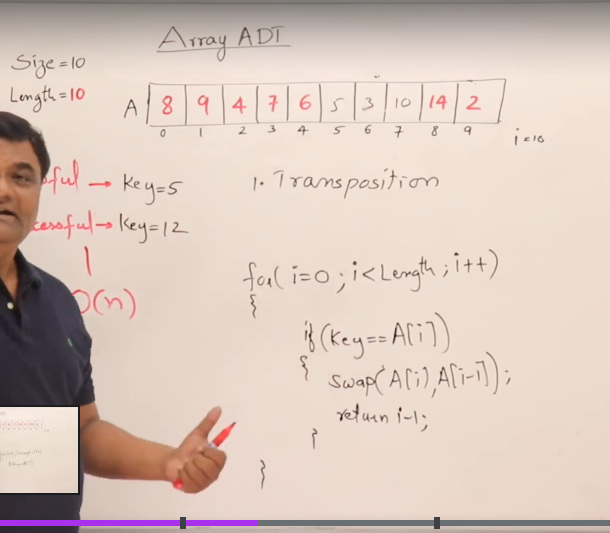 Array ADT
Size = 10
Length = 10
A 8 9 4 7 6 5 3 10 14 2
0 1 2 3 4 5 6 7 8 9
i = 10
ful → Key=5
1. Transposition
cessful → Key=12
O(n)
for( i=0 ; i<Length ; i++)
{
if (Key== A[i])
{
swap( A[i], A[i-1]);
return i-1;
}
}